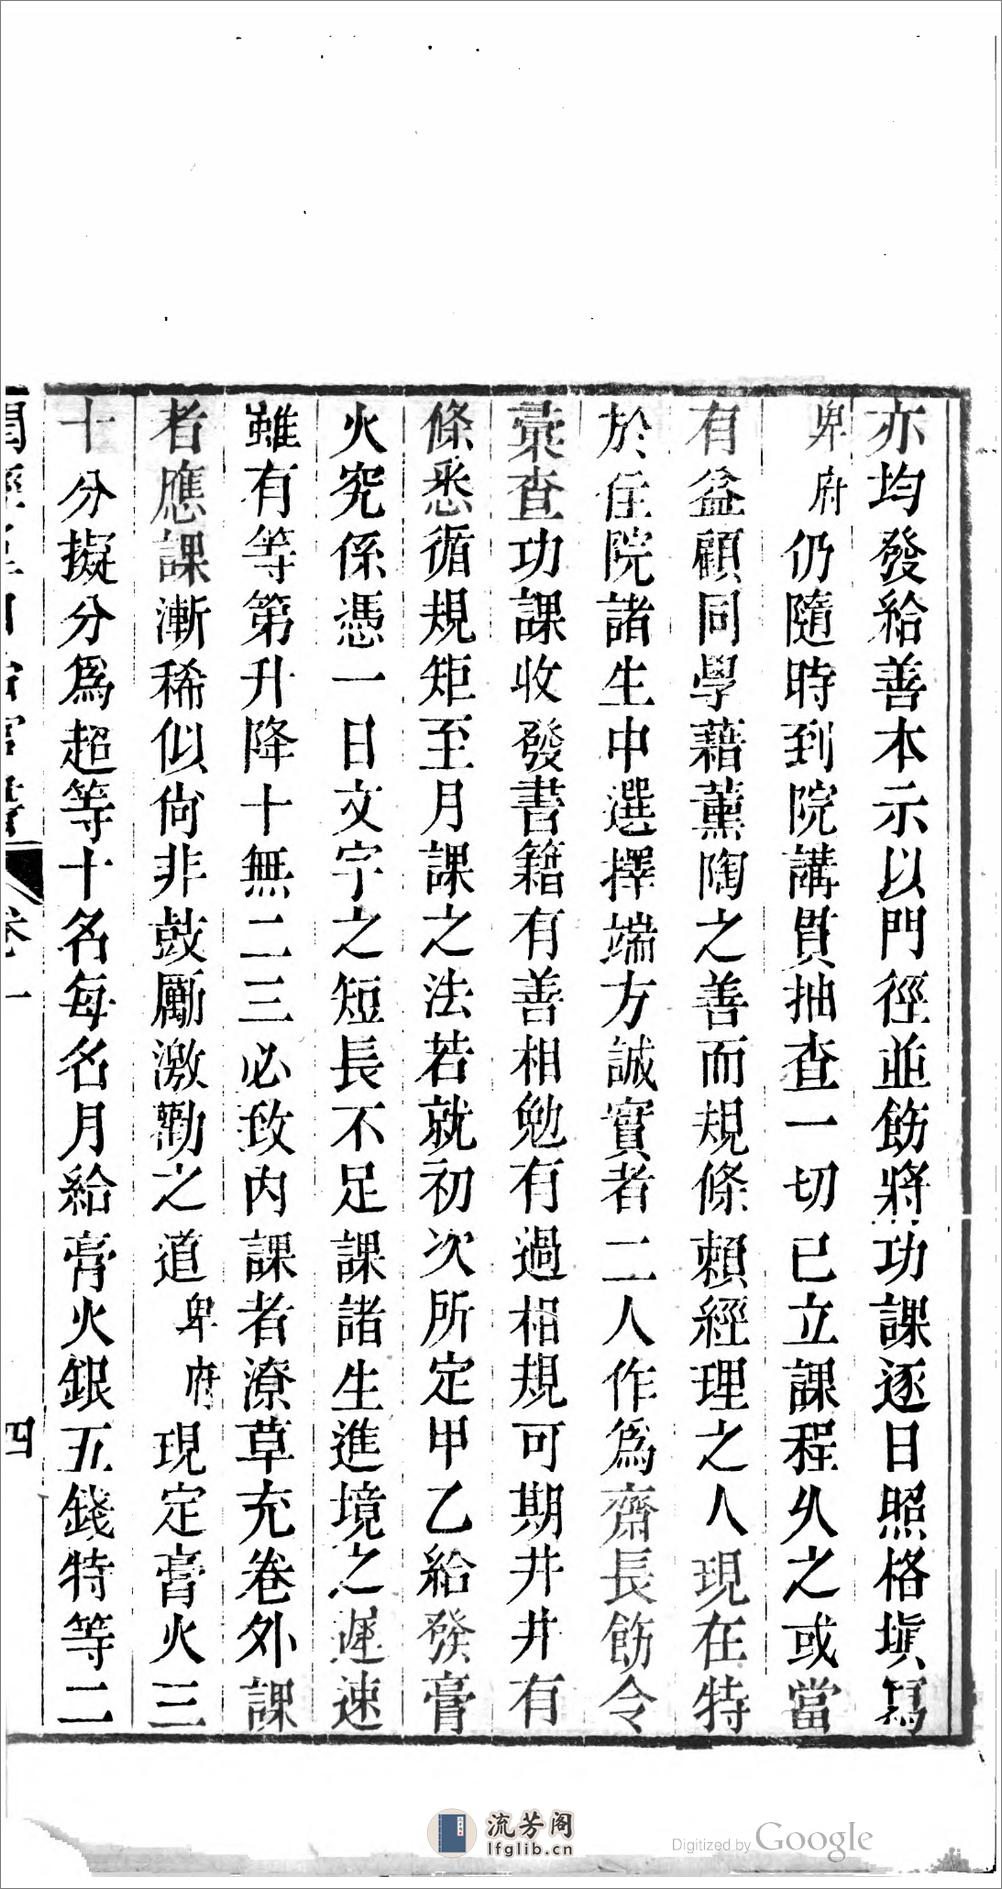 亦均發給善本示以門徑並飭將功課逐日照格塡寫
卑府仍隨時到院講貫抽查一切已立課程久之或當
有益顧同學藉薰陶之善而規條賴經理之人現在特
於住院諸生中選擇端方誠實者二人作爲齋長飭令
彙查功課收發書籍有善相勉有過相規可期井井有
條悉循規矩至月課之法若就初次所定甲乙給發膏
火究係憑一日文字之短長不足課諸生進境之遲速
雖有等第升降十無二三必致內課者潦草充卷外課
者應課漸稀似尙非鼓勵激勸之道卑府現定膏火三
十分擬分爲超等十名每名月給膏火銀五錢特等二
卷一
四
流芳阁
lfglib.cn
Digitized by Google